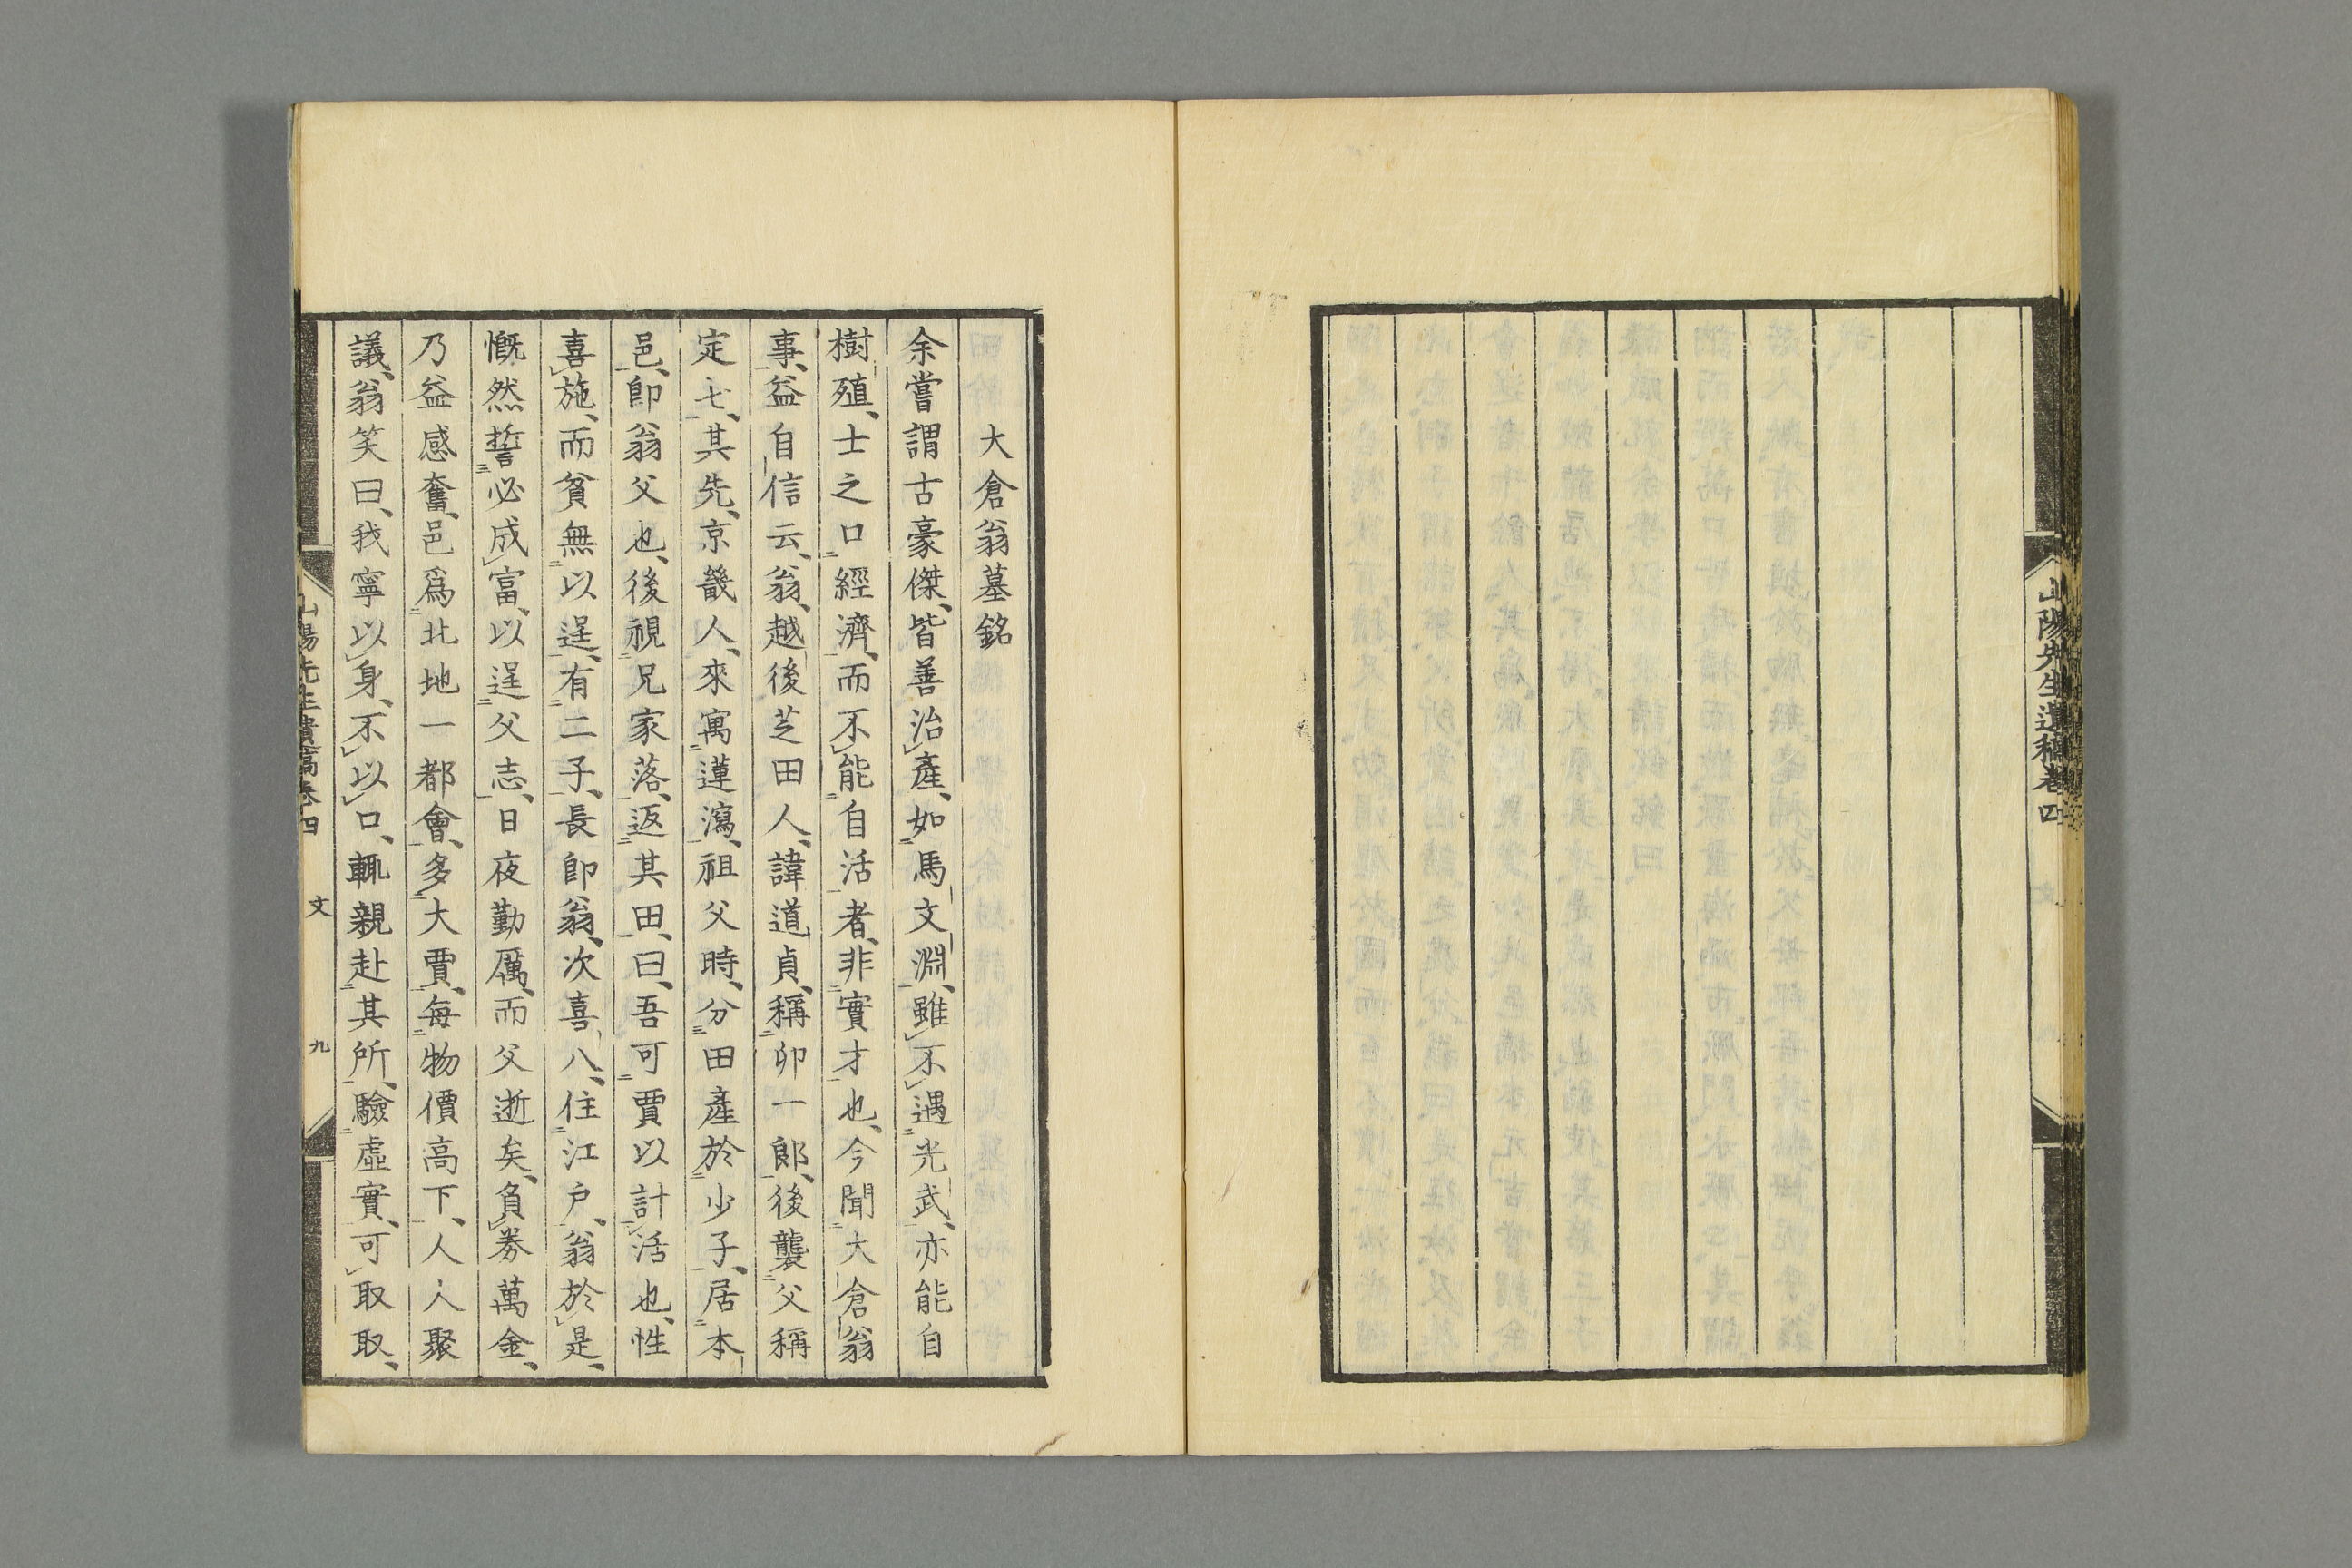 山陽先生遺稿卷四
大倉翁墓銘
余嘗謂古豪傑、皆善治產、如馬文淵、雖不遇光武、亦能自
樹殖、士之口經濟、而不能自活者、非實才也、今聞大倉翁
事、益自信云、翁、越後芝田人、諱道貞、稱卯一郎、後襲父稱
定七、其先、京畿人、來寓蓮瀉、祖父時、分田產於少子、居本
邑、卽翁父也、後視兄家落、返其田、曰、吾可賈以計活也、性
喜施、而貧無以逞、有二子、長卽翁、次喜八、住江戶、翁於是、
慨然誓必成富、以逞父志、日夜勤厲、而父逝矣、負券萬金、
乃益感奮、邑爲北地一都會、多大賈、每物價高下、人人聚
議、翁笑曰、我寧以身、不以口、輒親赴其所、驗虛實、可取取、
山陽先生遺稿卷四 文 九